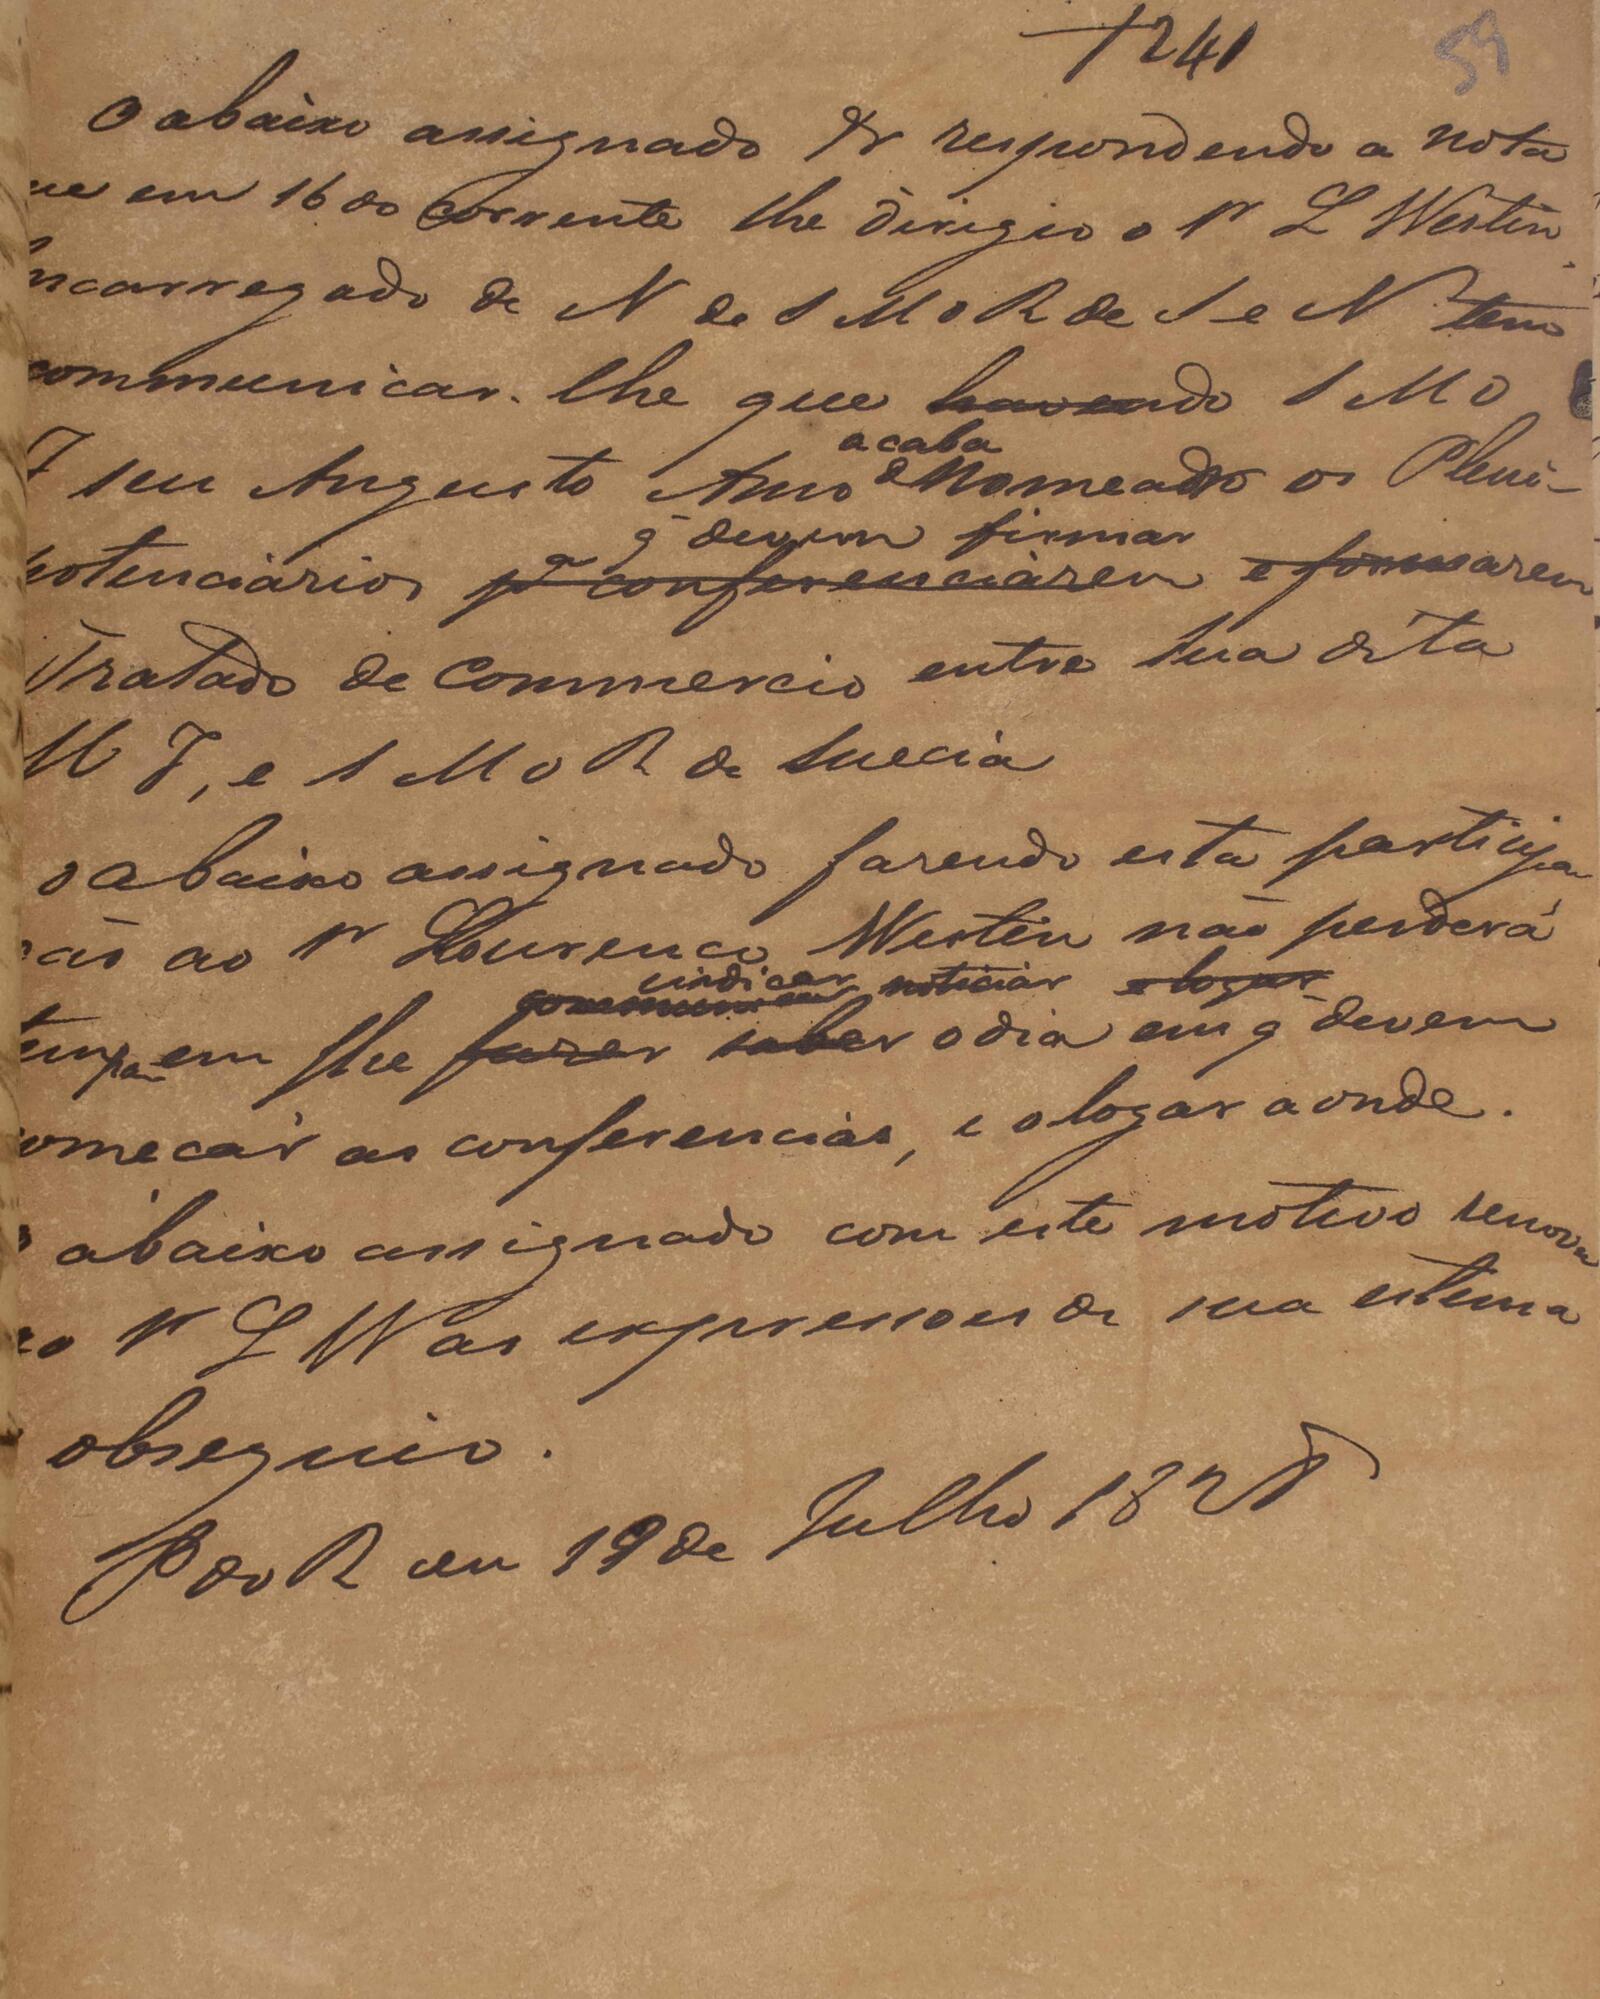 1241
59
O abaixo assignado &r respondendo a nota
ue em 16 do corrente lhe dirigio o Sr L Westin
ncarregado de N de S M o R de S e N tem
communicar-lhe que havendo S M O
acaba
I seu Augusto Amo de Nomeado os Pleni-
q̃ devem firmar
potenciarios pa conferenciarem e formarem
Tratado de Commercio entre Sua dita
M I, e S M o R de Suecia
O abaixo assignado fazendo esta participa
cão ao Sr Lourenco Westin não perderá
indicar
communicar noticiar e logar
tempo em lhe fazer saber o dia em q̃ devem
comecar as conferencias, e o logar aonde.
O abaixo assignado com este motivo renova
ao Sr L W as expressoes de sua estima
obsequio.
P do R em 19 de Julho 182